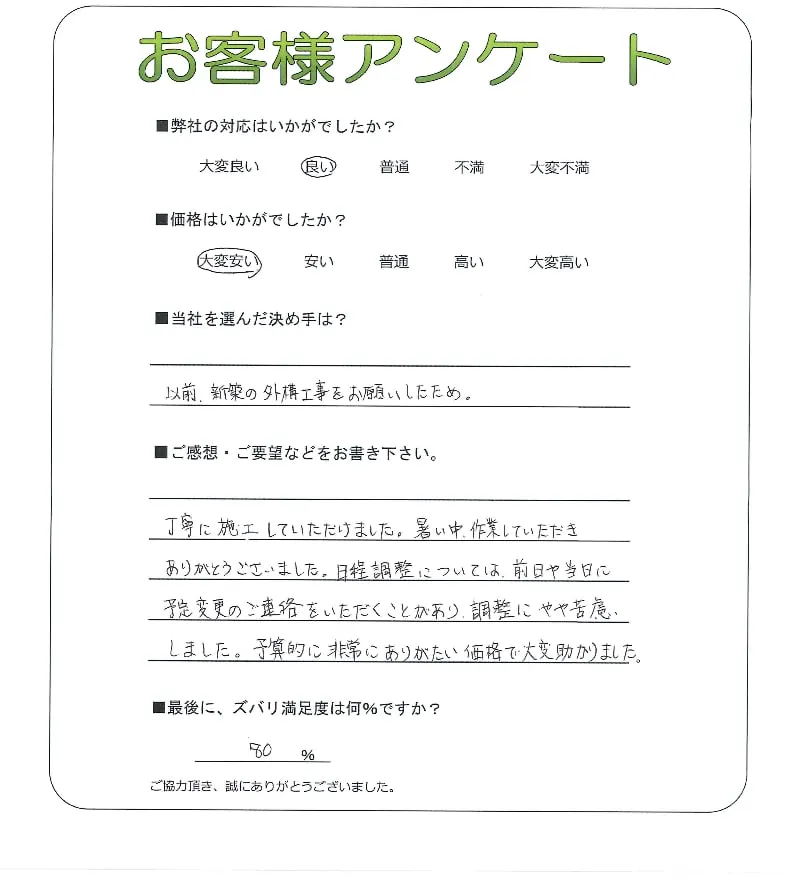 お客様アンケート
■弊社の対応はいかがでしたか？
大変良い 良い 普通 不満 大変不満
■価格はいかがでしたか？
大変安い 安い 普通 高い 大変高い
■当社を選んだ決め手は？
以前、新築の外構工事をお願いしたため。
■ご感想・ご要望などをお書き下さい。
丁寧に施工していただけました。暑い中、作業していただき
ありがとうございました。日程調整については、前日や当日に
予定変更のご連絡をいただくことがあり、調整にやや苦慮
しました。予算的に非常にありがたい価格で大変助かりました。
■最後に、ズバリ満足度は何％ですか？
80 ％
ご協力頂き、誠にありがとうございました。